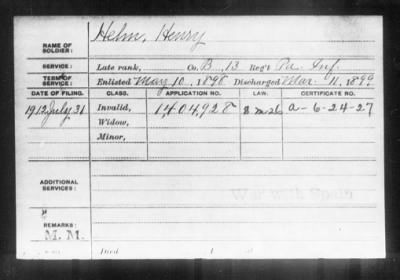 Helm, Henry
NAME OF SOLDIER:
SERVICE: Late rank, Co. B, 13 Reg't Pa. Inf.
TERM OF SERVICE: Enlisted May 10, 1898 Discharged Mar. 11, 1899
DATE OF FILING. CLASS. APPLICATION NO. LAW. CERTIFICATE NO.
1912 July 31 Invalid, 1404928 A-6-24-27
Widow,
Minor,
ADDITIONAL SERVICES:
War with Spain
REMARKS:
M. M.
Died